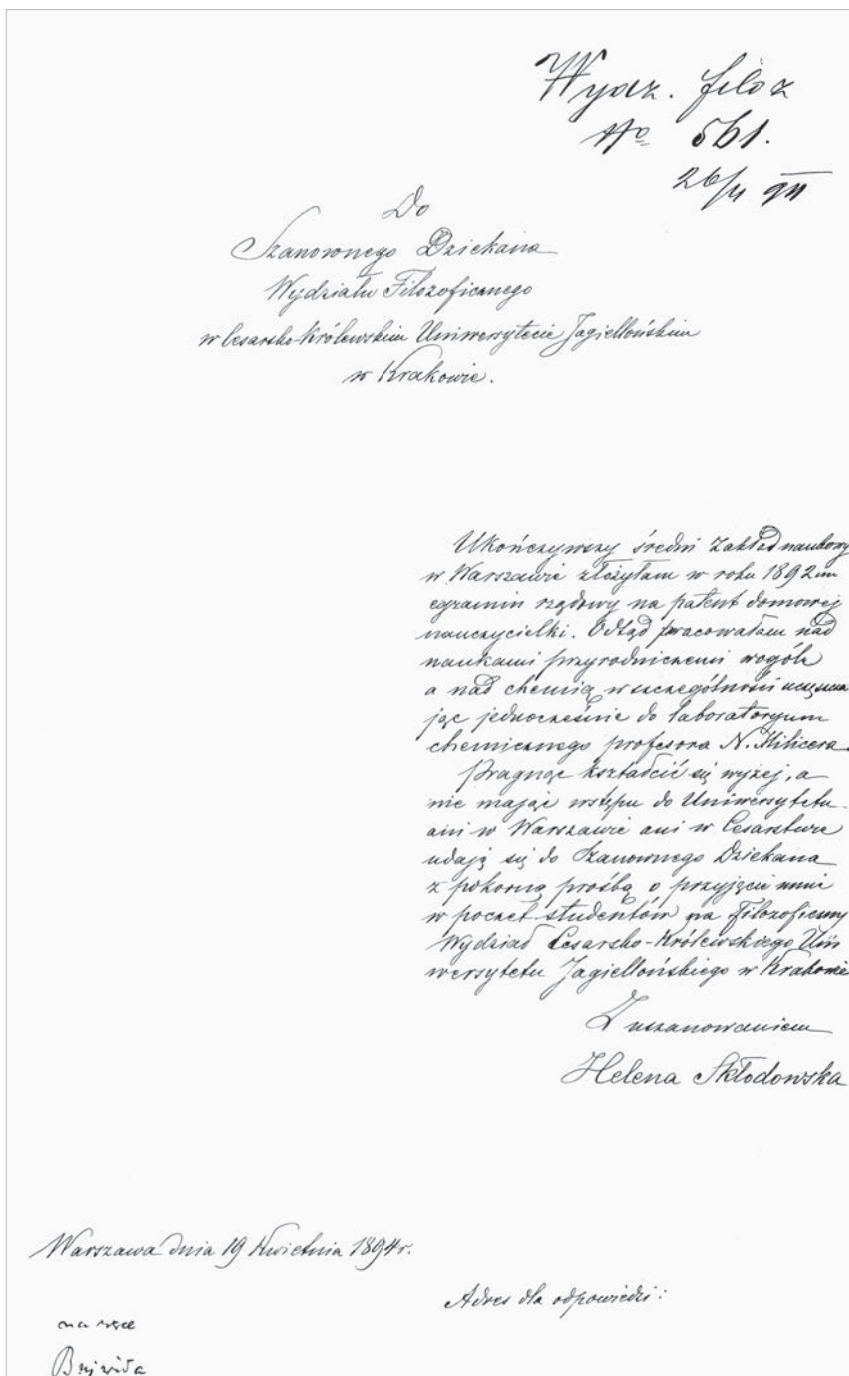 Wydz. filoz
No 561.
26/4 94
Do
Szanownego Dziekana
Wydziału Filozoficznego
w Cesarsko-Królewskim Uniwersytecie Jagiellońskim
w Krakowie.
Ukończywszy średni Zakład naukowy
w Warszawie złożyłam w roku 1892im
egzamin rządowy na patent domowej
nauczycielki. Odtąd pracowałam nad
naukami przyrodniczemi wogóle
a nad chemią w szczególności uczęszcza
jąc jednocześnie do laboratoryum
chemicznego profesora N. Milicera.
Pragnąc kształcić się wyżej, a
nie mając wstępu do Uniwersytetu
ani w Warszawie ani w Cesarstwie
udaję się do Szanownego Dziekana
z pokorną prośbą o przyjęcie mnie
w poczet studentów na Filozoficzny
Wydział Cesarsko-Królewskiego Uni
wersytetu Jagiellońskiego w Krakowie
Z uszanowaniem
Helena Skłodowska
Warszawa dnia 19 Kwietnia 1894 r.
Adres dla odpowiedzi:
na ręce
Bujwida